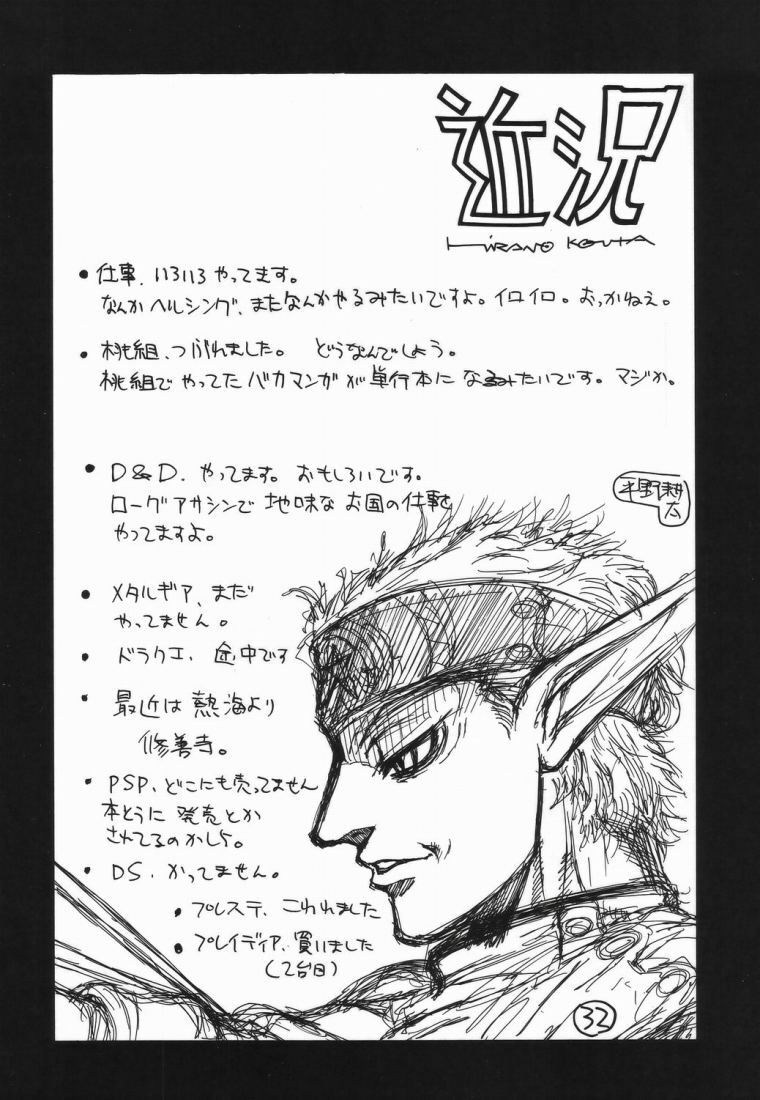 近況
HIRANO KOUTA
• 仕事、いろいろやってます。
なんかヘルシング、またなんかやるみたいですよ。イロイロ。おっかねえ。
• 桃組、つぶれました。 どうなんでしょう。
桃組でやってたバカマンガが単行本になるみたいです。マジか。
• D&D、やってます。おもしろいです。
ローグアサシンで地味なお国の仕事を
やってますよ。
平野耕
太
• メタルギア、まだ
やってません。
• ドラクエ、途中です
• 最近は熱海より
修善寺。
• PSP、どこにも売ってません
本とうに発売とか
されてるのかしら。
• DS、かってません。
• プレステ、こわれました
• プレイディア、買いました
(2台目)
32